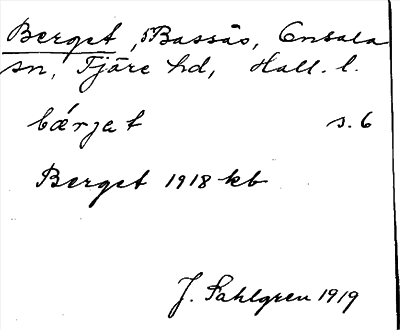 Berget, Bassås, Onsala
sn, Fjäre hd, Hall. l.
bærjat s. 6
Berget 1918 kb
J. Sahlgren 1919